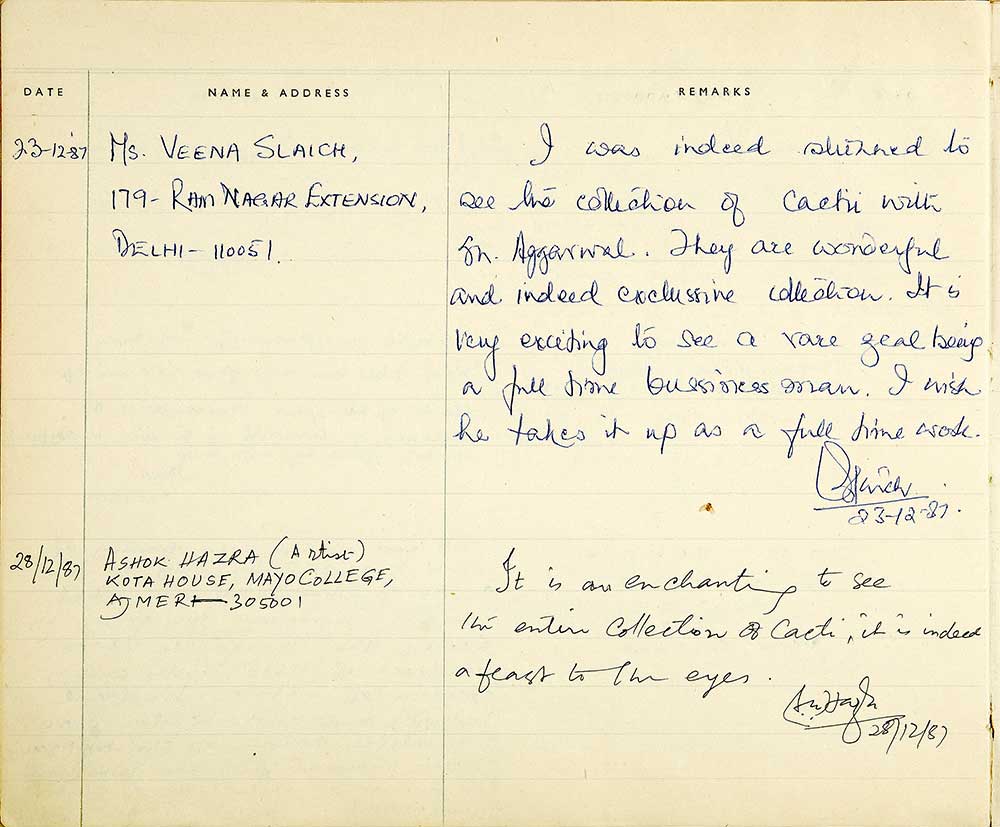 DATE NAME & ADDRESS REMARKS
23-12-87 Ms. VEENA SLAICH,
179- RAM NAGAR EXTENSION,
DELHI-110051.
I was indeed stunned to
see the collection of Cactii with
Sh. Aggarwal. They are wonderful
and indeed exclussive collection. It is
very exciting to see a rare zeal being
a full time bussiness man. I wish
he takes it up as a full time work.
23-12-87.
28/12/87 ASHOK HAZRA (Artist)
KOTA HOUSE, MAYO COLLEGE,
AJMER - 305001
It is an enchanting to see
the entire Collection of Cacti, it is indeed
a feast to the eyes.
28/12/87